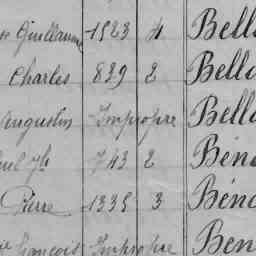 Guillaume 1523 4 Bell
Charles 829 2 Bell
Augustin Impropre Bell
743 2 Bén
Pierre 1335 3 Bénc
François Impropre Ben